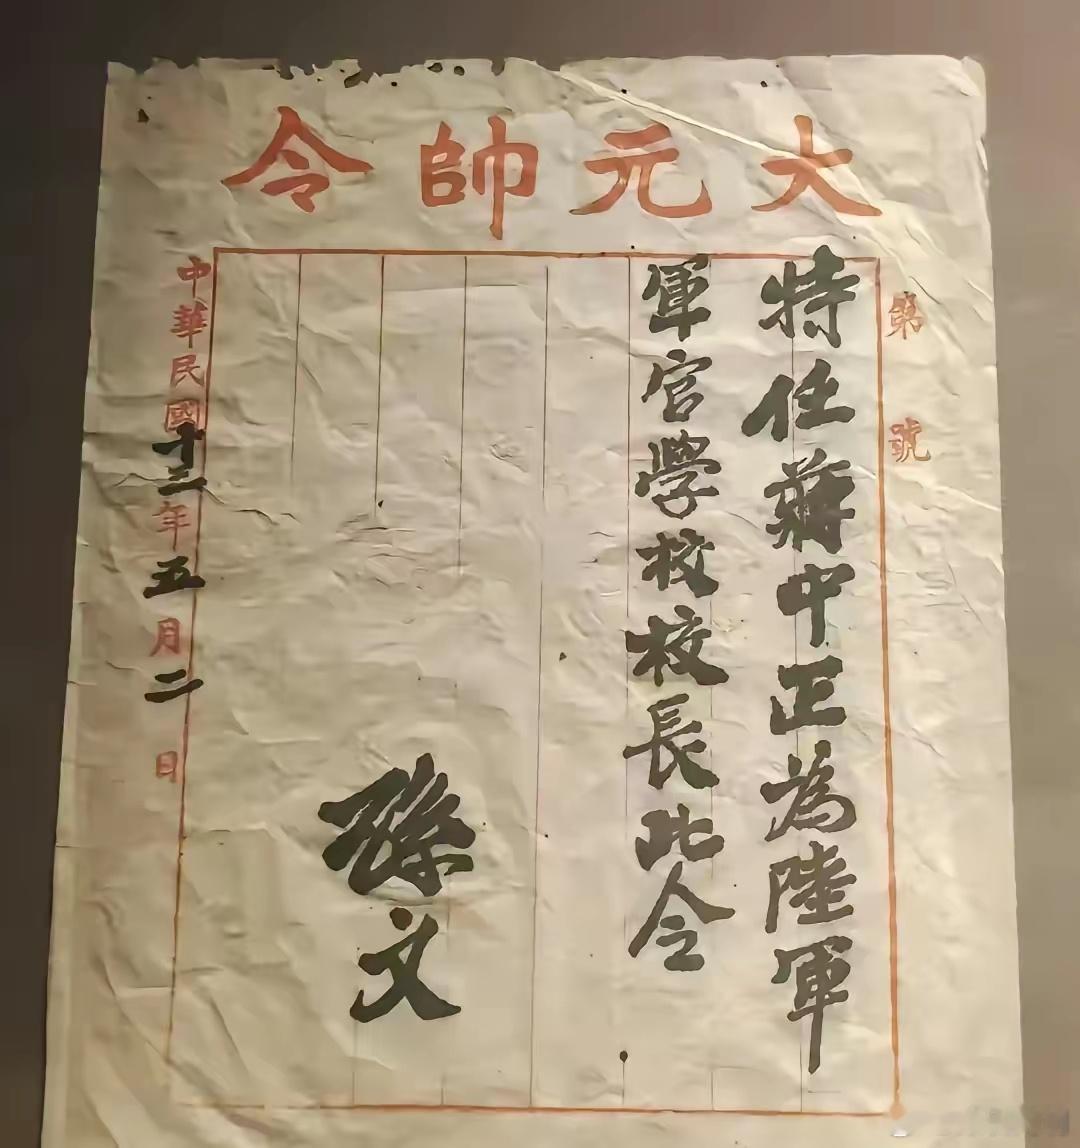 大元帥令
第 號
特任蔣中正為陸軍
軍官學校校長此令
孫文
中華民國十三年五月二日